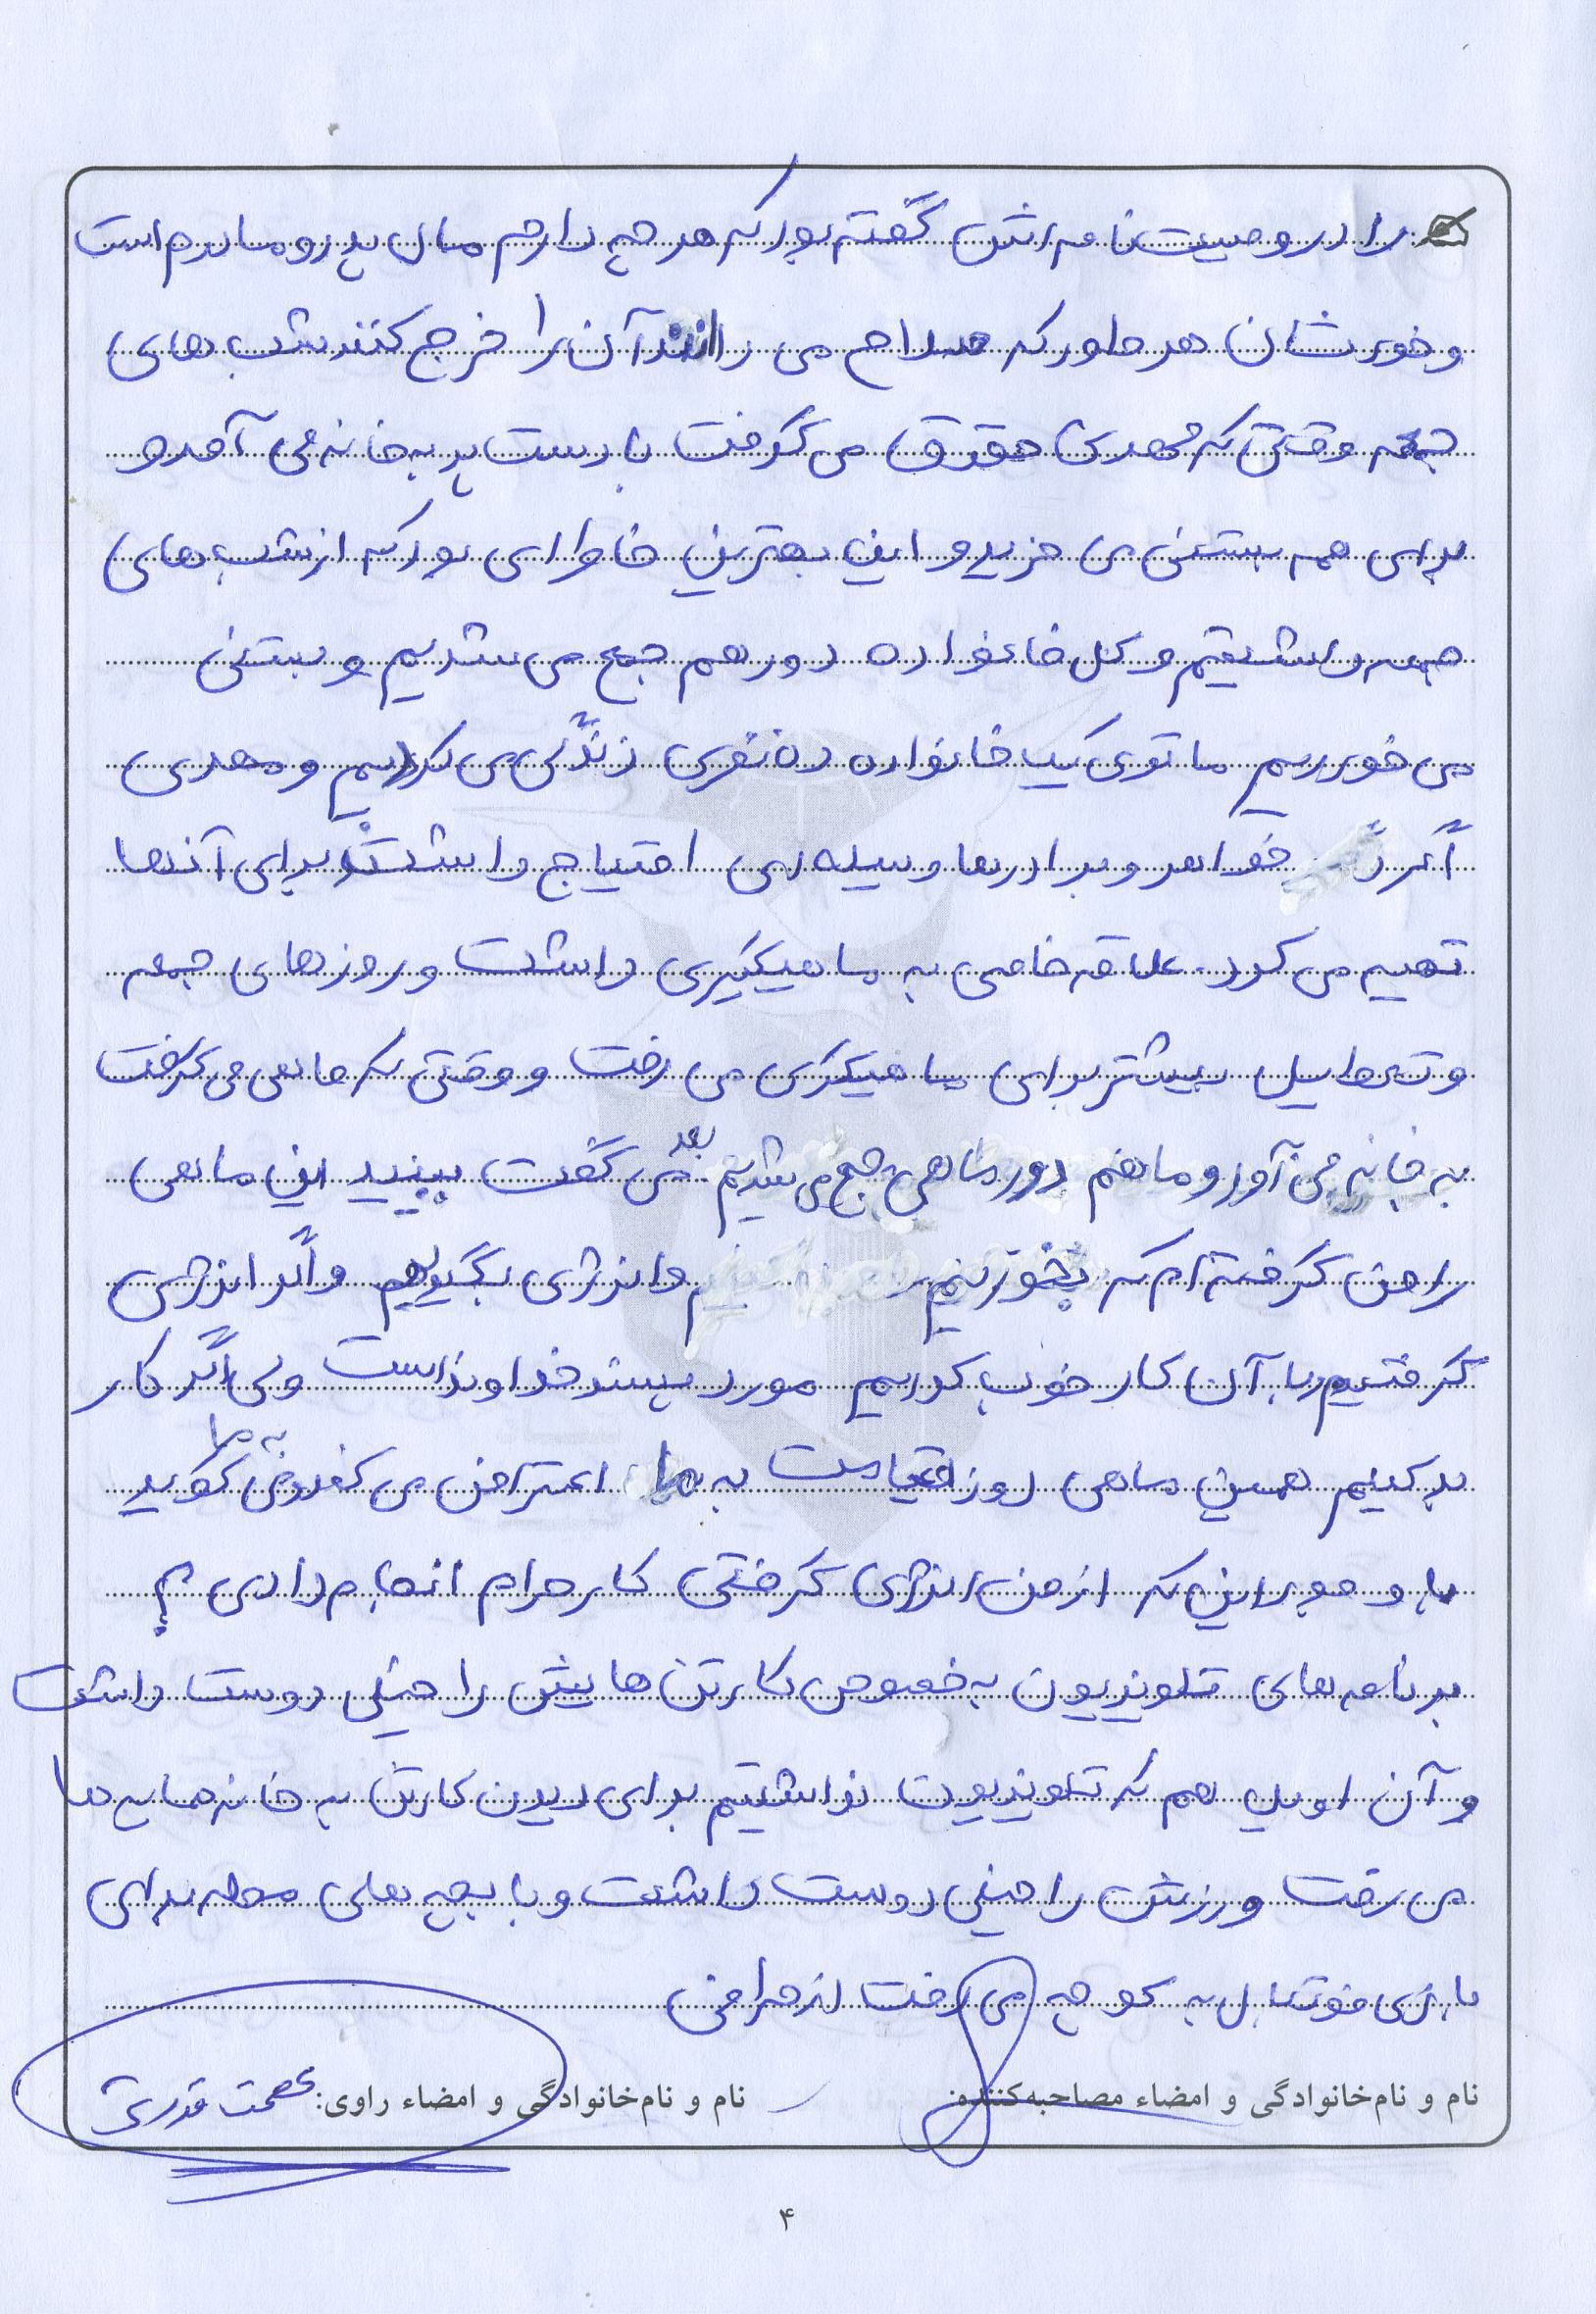 را در وصیت نامه اش گفته بود که هر چه دارم مال پدر و مادرم است
و خودشان هر طور که صلاح می دانند آن را خرج کنند شب های
جمعه وقتی که مهدی حقوق می گرفت با دست پر به خانه می آمد و
برای همه بستنی می خرید و این بهترین خاطرای بود که از شب های
جمعه داشتیم و کل خانواده دور هم جمع می شدیم و بستنی
می خوردیم ما توی یک خانواده ده نفری زندگی می کردیم و مهدی
اگر خواهر و برادرها وسیله ای احتیاج داشتند برای آنها
تهیه می کرد. علاقه خاصی به ماهیگیری داشت و روزهای جمعه
و تعطیل بیشتر برای ماهیگیری می رفت و وقتی که ماهی می گرفت
به خانه می آورد و ما هم دور ماهی جمع می شدیم. بعد می گفت ببینید این ماهی
را من گرفته ام که بخوریم و انرژی بگیریم و اگر انرژی
گرفتیم با آن کار خوب کردیم مورد پسند خداوند است ولی اگر کار
بد کنیم همین ماهی روز قیامت به ما اعتراض می کند و می گوید به ما
با وجود این که از من انرژی گرفتی کار حرام انجام دادی ؟
برنامه های تلویزیون به خصوص کارتن هایش را خیلی دوست داشت
و آن اوایل هم که تلویزیون نداشتیم برای دیدن کارتن به خانه همسایه ها
می رفت ورزش را خیلی دوست داشت و با بچه های محله برای
بازی فوتبال به کوچه می رفت از طرفی
نام و نام‌خانوادگی و امضاء مصاحبه‌کننده:
نام و نام‌خانوادگی و امضاء راوی: عصمت قدرتی
۴